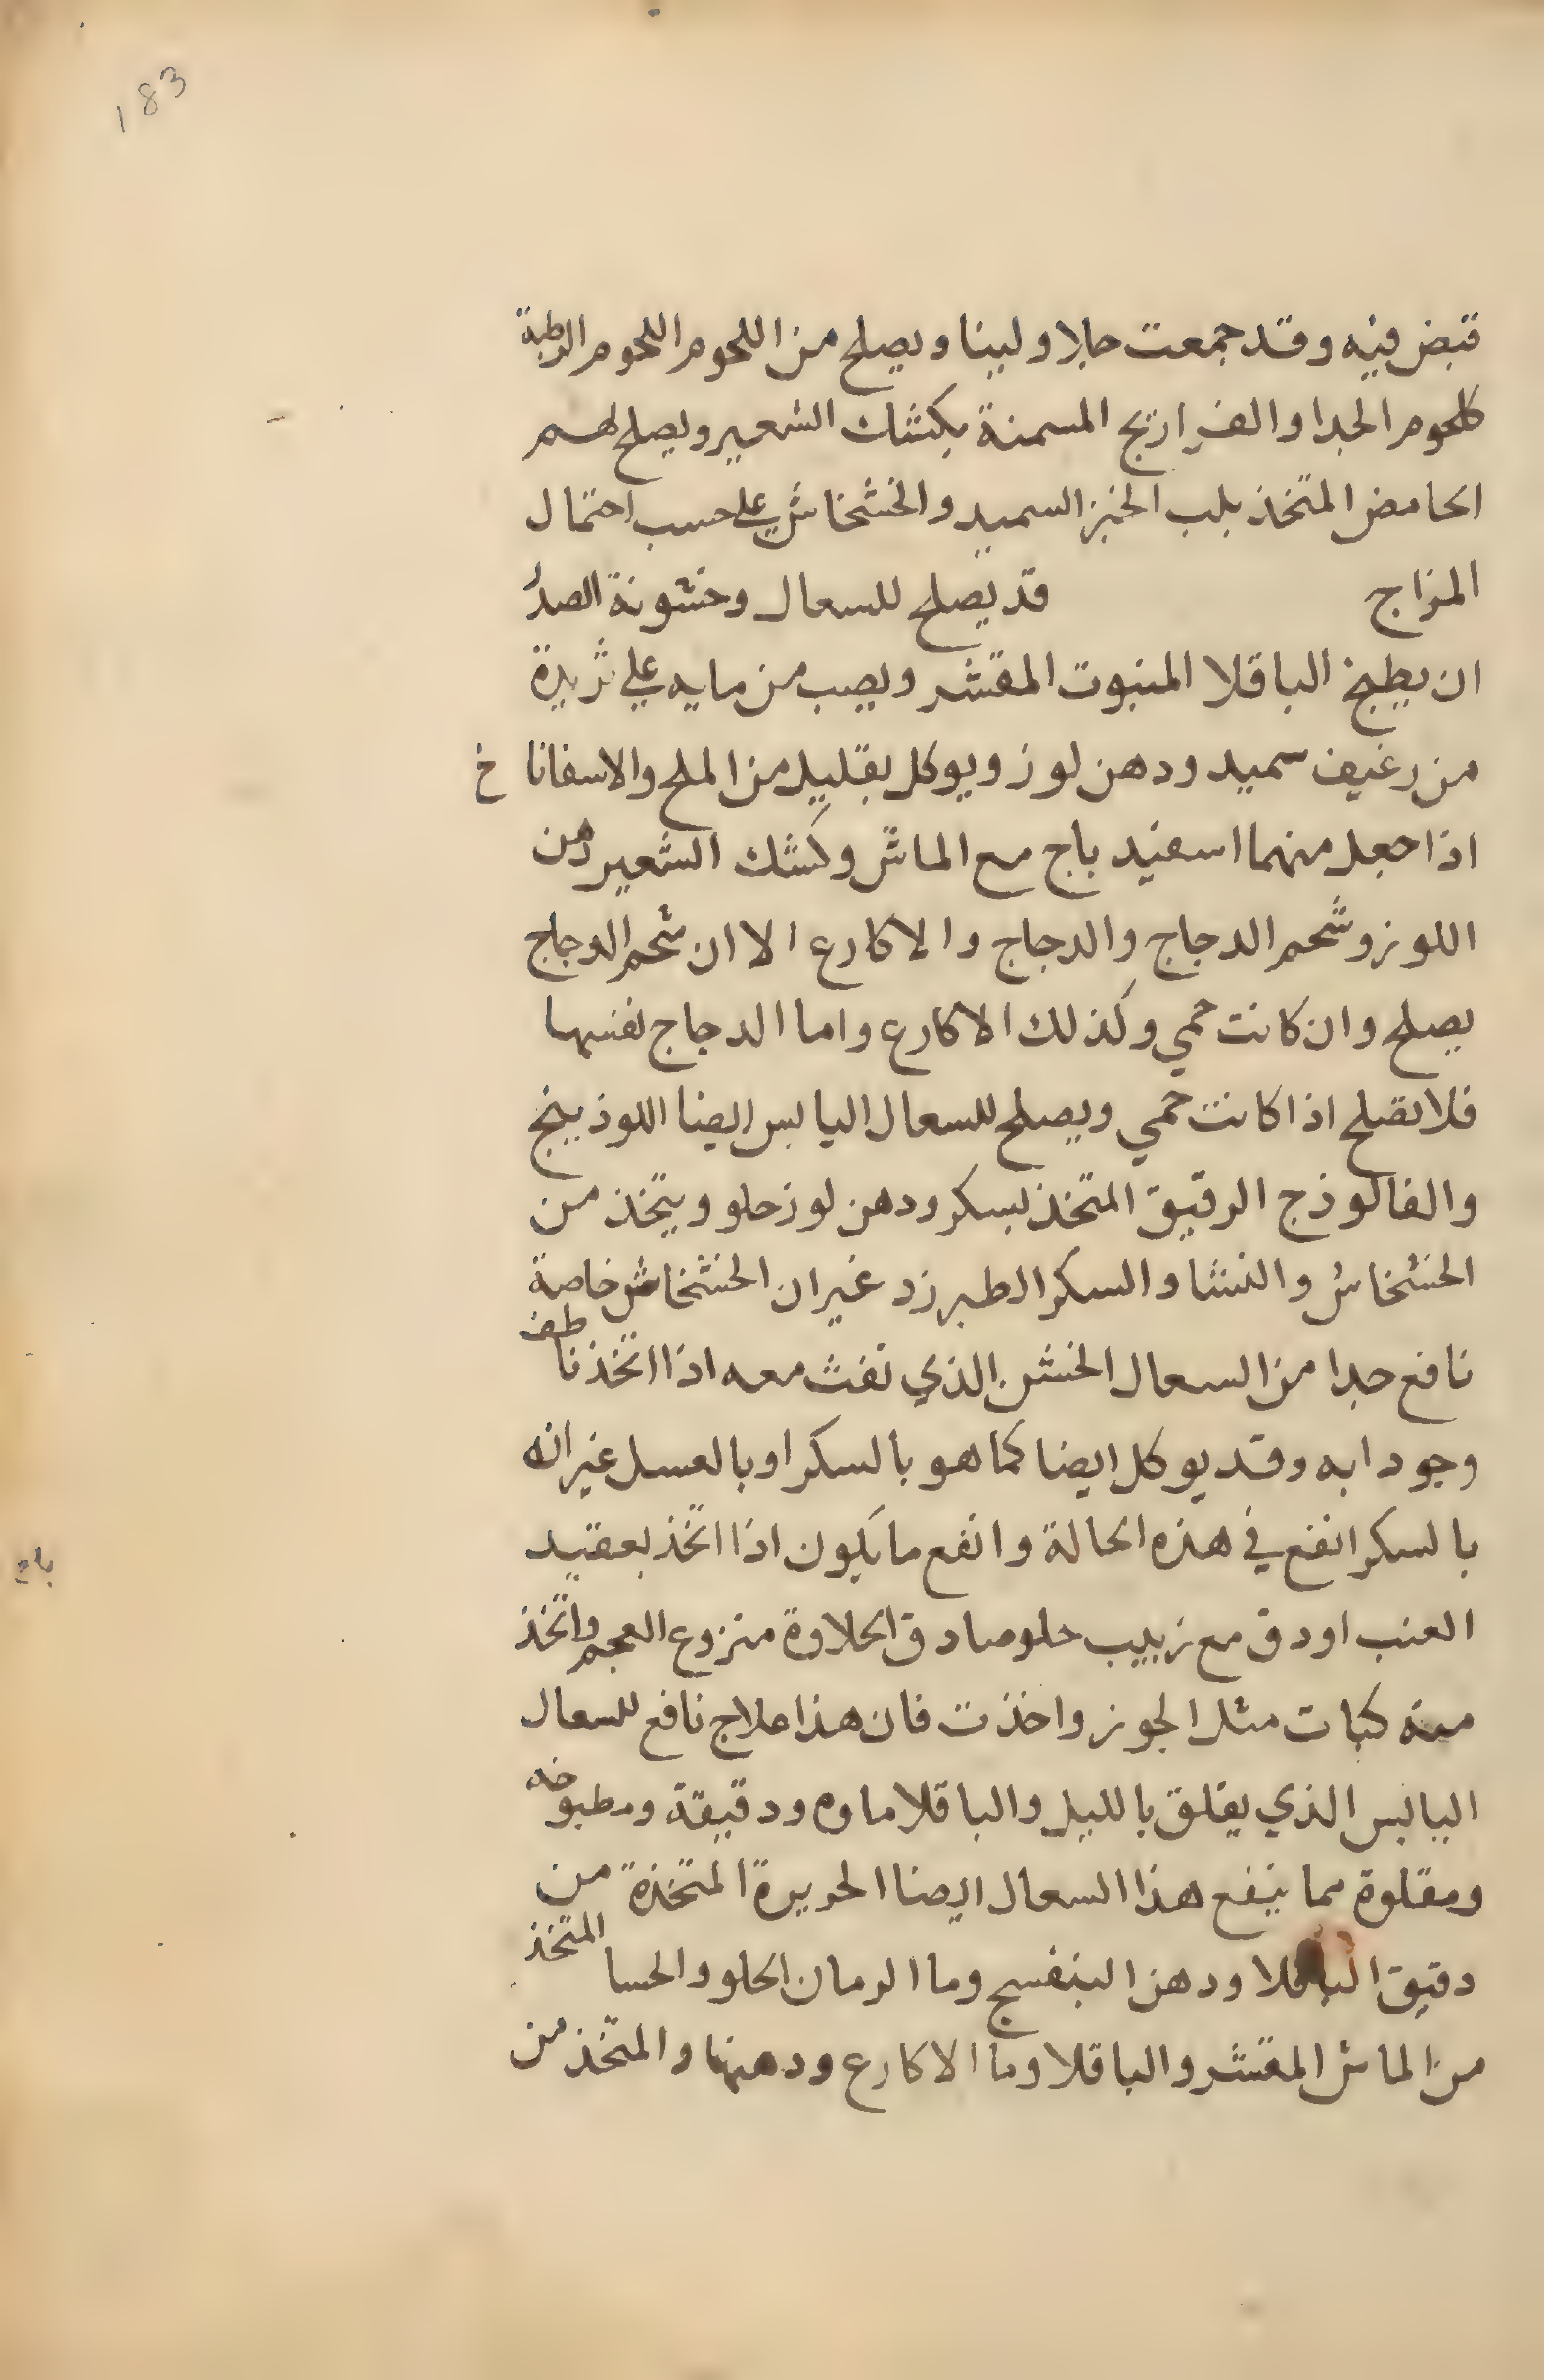 183
قبض فيه وقد جمعت جلا ولينا ويصلح من اللحوم اللحوم الرطبة
كلحوم الجدا والفراريج المسمنة بكشك الشعير ويصلح لهم
الحامض المتخذ بلب الخبز السميد والخشخاش على حسب احتمال
المزاج قد يصلح للسعال وخشونة الصدر
ان يطبخ الباقلا المنبوت المقشر ويصب من مايه على ثريدة
من رغيف سميد ودهن لوز ويوكل بقليل من الملح والاسفاناخ
اذا جعل منهما اسفيد باج مع الماش وكشك الشعير ودهن
اللوز وشحم الدجاج والدجاج والاكارع الا ان شحم الدجاج
يصلح وان كانت حمي وكذلك الاكارع واما الدجاج نفسها
فلا تصلح اذا كانت حمي ويصلح للسعال اليابس ايضا اللوذينج
والفالوذج الرقيق المتخذ بسكر ودهن لوز حلو ويتخذ من
الخشخاش والنشا والسكر الطبرزد غير ان الخشخاش خاصة
نافع جدا من السعال الخشن الذي نفث معه اذا اتخذ ناطف
وجودابه وقد يوكل ايضا كما هو بالسكر او بالعسل غير انه
بالسكر انفع في هذه الحالة وانفع ما يكون اذا اتخذ بعقيد
العنب او دق مع زبيب حلو صادق الحلاوة منزوع العجم واتخذ
منه كبات مثل الجوز واخذت فان هذا علاج نافع للسعال
اليابس الذي يقلق بالليل والباقلا ماوه ودقيقة ومطبوخه
ومقلوة مما ينفع هذا السعال ايضا الحريرة المتخذة من
دقيق الباقلا ودهن البنفسج وما الرمان الحلو والحسا المتخذ
من الماش المقشر والباقلا وما الاكارع ودهنها والمتخذ من